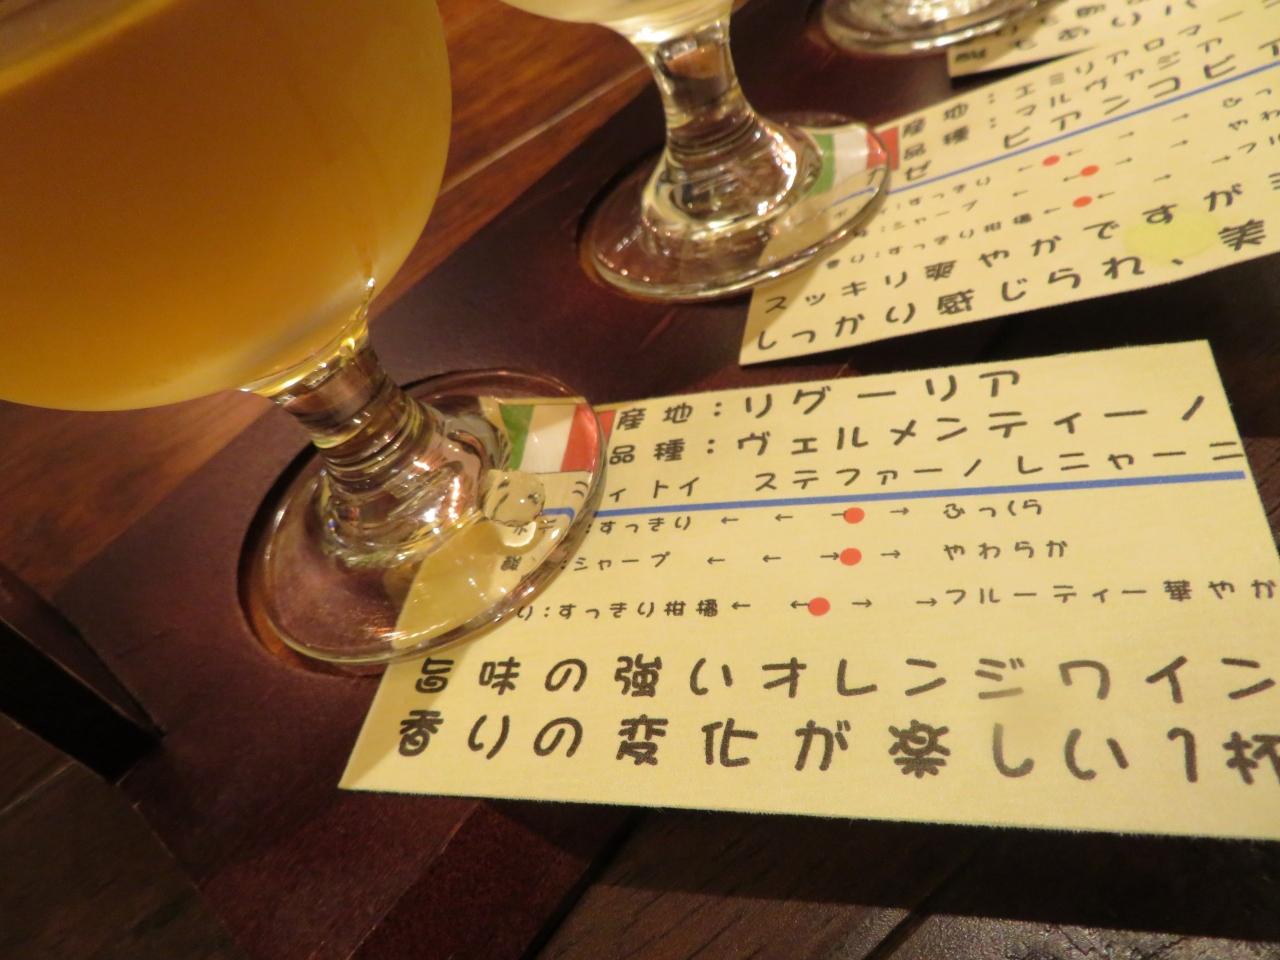 もありパ
産地：エミリアロマー
品種：マルヴァジア
ビアンコピア
ふっ
すっきり ← ← → →
やわ
シャープ ← ← → →
フル
香り：すっきり柑橘 ← ← → →
スッキリ爽やかですが
しっかり感じられ、美
産地：リグーリア
品種：ヴェルメンティーノ
ィトイ ステファーノ レニャーニ
ボディ：すっきり ← ← → ふっくら
酸：シャープ ← ← → → やわらか
り：すっきり柑橘 ← ← → → フルーティー華やか
旨味の強いオレンジワイン
香りの変化が楽しい1杯